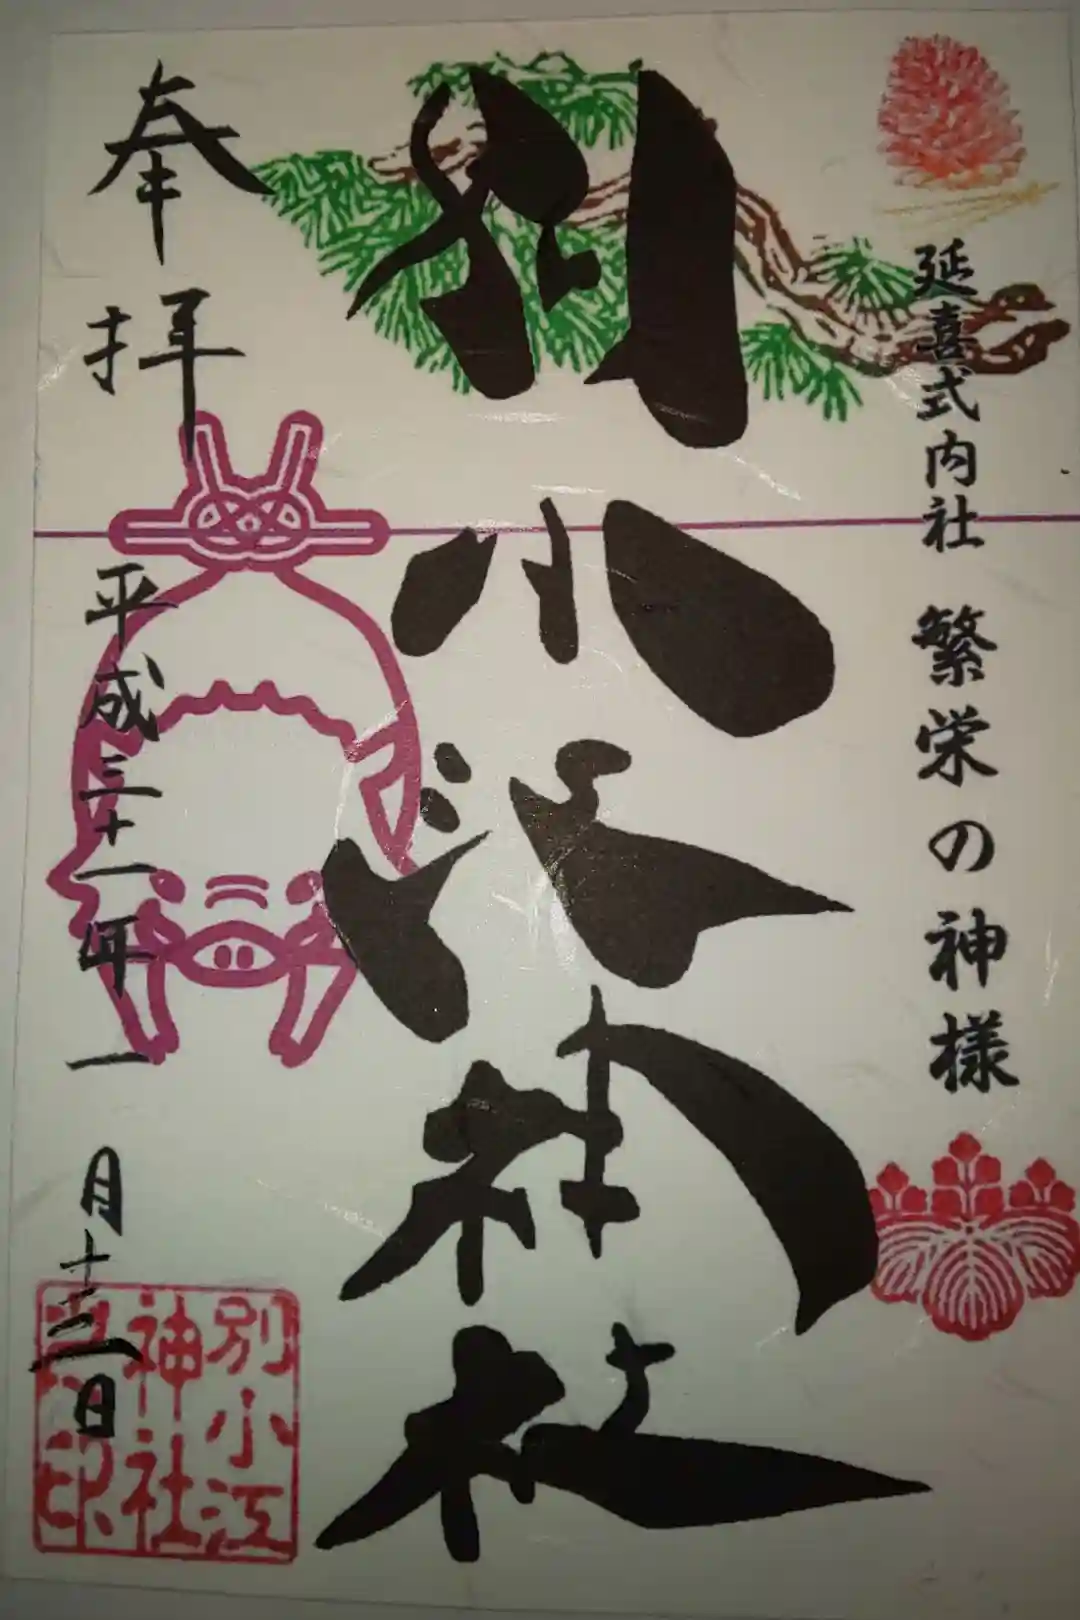 延喜式内社 繁栄の神様
別小江神社
奉拝
平成三十一年一月十三日
別小江
神社
印